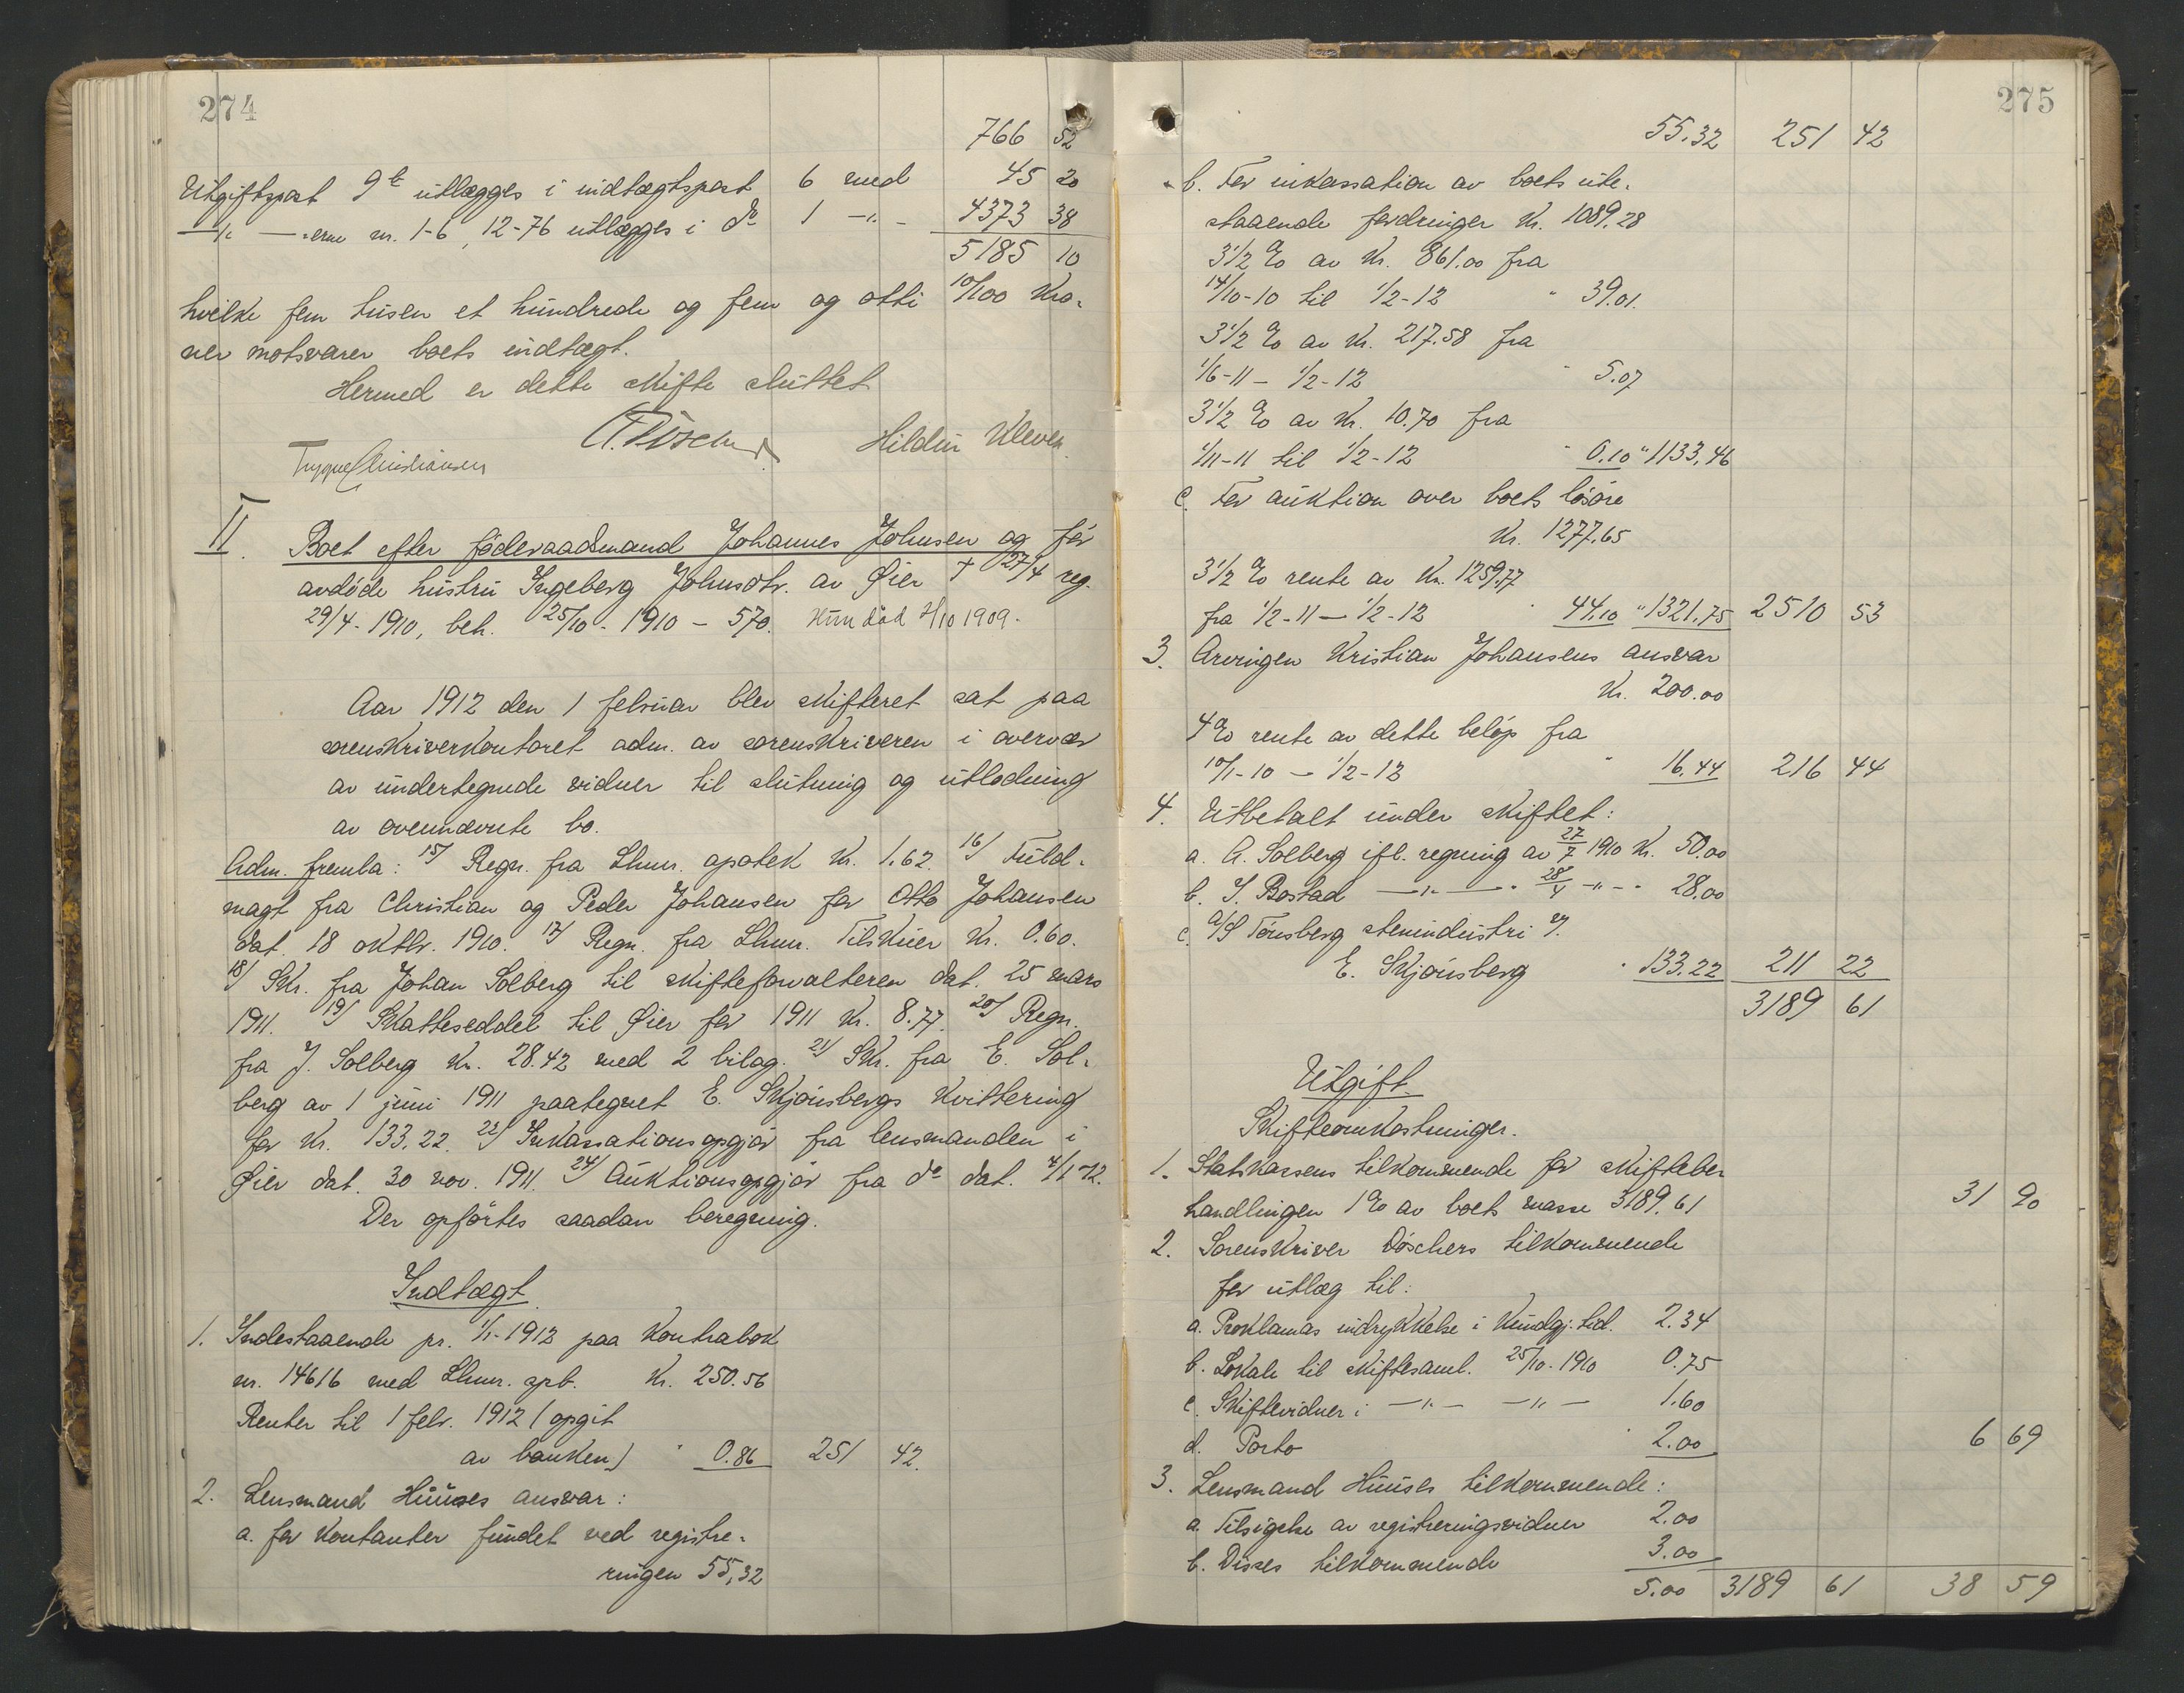 274
766 52
Utgiftspost 9b utlægges i indtægtspost 6 med 45 20
—"— -erne nr. 1-6, 12-76 utlægges i do 1 -"- 4373 38
5185 10
hvilke fem tusen et hundrede og fem og otti 10/100 kro-
ner motsvarer boets indtægt.
Hermed er dette skifte sluttet
Hildur Kleven
Trygve Christiansen
II. Boet efter föderaadsmand Johannes Johnsen og før
avdöde hustru Ingeberg Johnsdtr. av Øier + 27/4 reg.
29/4-1910, beh. 25/10-1910 - 570. Hun död 4/10 1909.
Aar 1912 den 1 februar blev skifteret sat paa
sorenskriverkontoret adm. av sorenskriveren i overvær
av undertegnede vidner til slutning og utlodning
av ovennævnte bo.
Adm. fremla: 15/ Regn. fra Lhmr. apotek Kr. 1.62. 16/ Fuld-
magt fra Christian og Peder Johansen for Otto Johansen
dat. 18 oktbr. 1910. 17/ Regn. fra Lhmr. Tilskuer Kr. 0.60.
18/ Skr. fra Johan Solberg til skifteforvalteren dat. 25 mars
1911. 19/ Skatteseddel til Øier for 1911 Kr. 8.77. 20/ Regn.
fra J. Solberg Kr. 28.42 med 2 bilag. 21/ Skr. fra E. Sol-
berg av 1 juni 1911 paategnet E. Skjønsbergs kvittering
for Kr. 133.22. 22/ Inkassationsopgjør fra lensmanden i
Øier dat. 30 nov. 1911. 24/ Auktionsopgjør fra do dat. 4/1-12.
Der opførtes saadan beregning.
Indtægt
1. Indestaaende pr. 1/1-1912 paa Kontrabok
nr. 14616 med Lhmr. spb. Kr. 250.56
Renter til 1 febr. 1912 (opgit
av banken) " 0.86 251 42.
2. Lensmand Huuses ansvar:
a. for kontanter fundet ved registre-
ringen 55,32
275
55.32 251 42
b. For inkassation av boets ute-
staaende fordringer Kr. 1089.28
3 1/2 % av Kr. 861.00 fra
14/10-10 til 1/2-12 " 39.01.
3 1/2 % av Kr. 217.58 fra
1/6-11 - 1/2-12 " 5.07
3 1/2 % av Kr. 10.70 fra
1/11-11 til 1/2-12 " 0.10 " 1133.46
c. For auktion over boets løsøre
Kr. 1277.65
3 1/2 % rente av Kr. 1259.77
fra 1/2-11 - 1/2-12 " 44.10 " 1321.75 2510 53
3. Arvingen Kristian Johansens ansvar
Kr. 200.00
4 % rente av dette beløp fra
10/1-10 - 1/2-12 " 16.44 216 44
4. Utbetalt under skiftet:
a. A. Solberg ifl. regning av 27/7 1910 Kr. 50.00
b. J. Bostad —"— - 28/4 -"- - 28.00
c. A/S Tønsberg stenindustri v.
E. Skjønsberg " 133.22 211 22
3189 61
Utgift.
Skifteomkostninger.
1. Statskassens tilkommende for skiftebe-
handlingen 1 % av boets masse 3189.61 31 90
2. Sorenskriver Döschers tilkommende
for utlæg til:
a. Proklamas indrykkelse i Kundgj. tid. 2.34
b. Lokale til skiftesaml. 25/10-1910 0.75
c. Skiftevidner i —"— —"— 1.60
d. Porto " 2.00 6 69
3. Lensmand Huuses tilkommende:
a. Tilsigelse av registreringsvidner 2.00
b. Disses tilkommende 3.00
5.00 3189 61 38 59